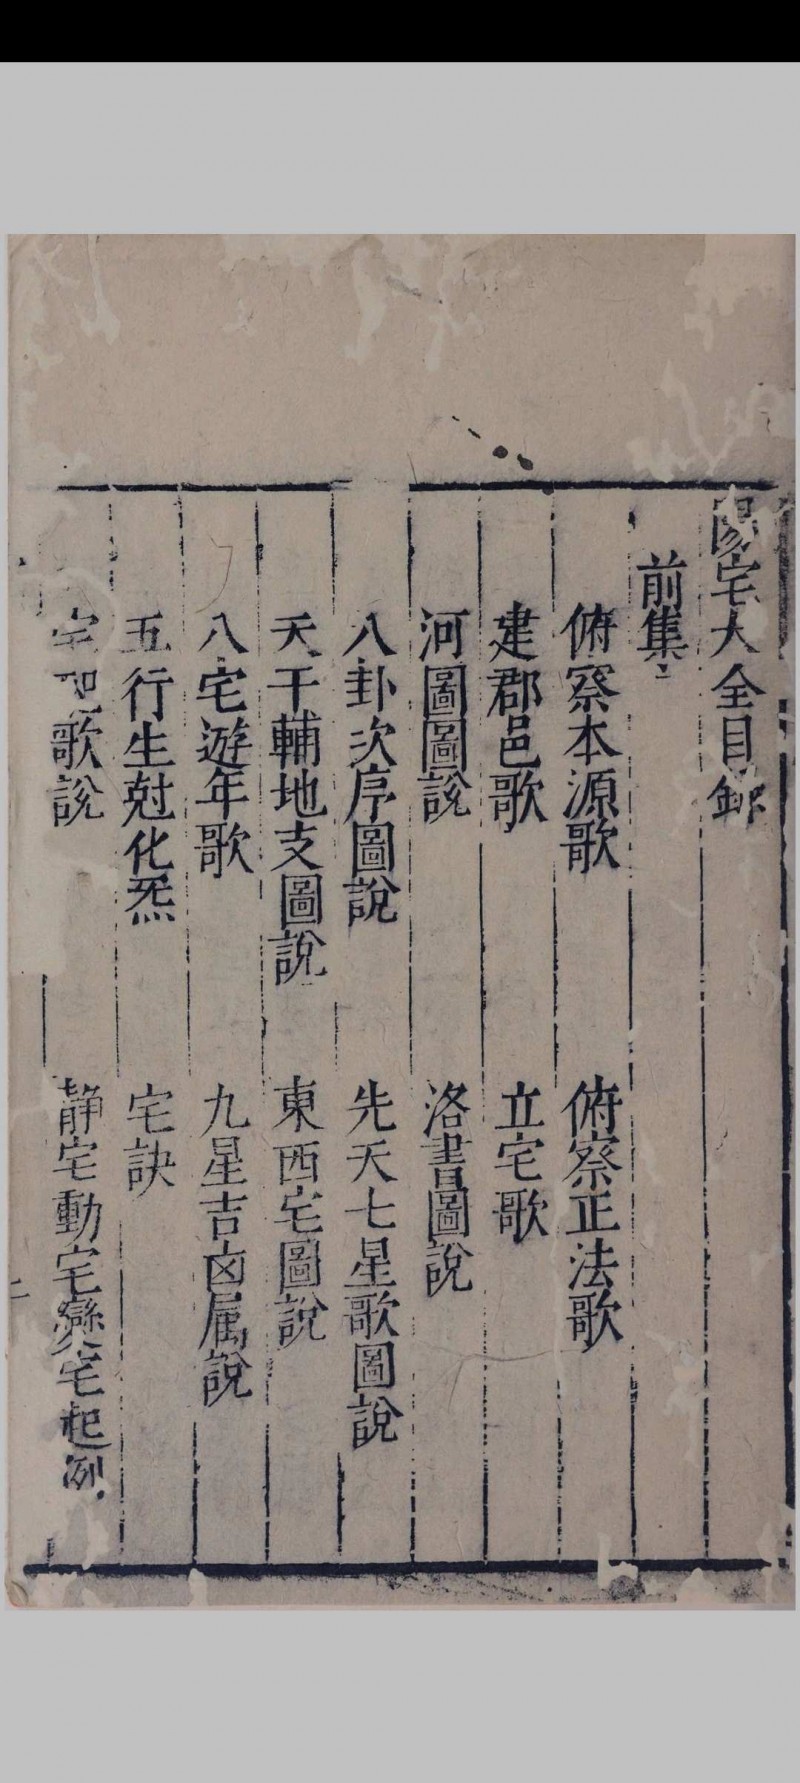 陽宅大全目錄
前集
俯察本源歌 俯察正法歌
建郡邑歌 立宅歌
河圖圖說 洛書圖說
八卦次序圖說 先天七星歌圖說
天干輔地支圖說 東西宅圖說
八宅遊年歌 九星吉凶属說
五行生尅化炁 宅訣
歌說 静宅動宅變宅起例